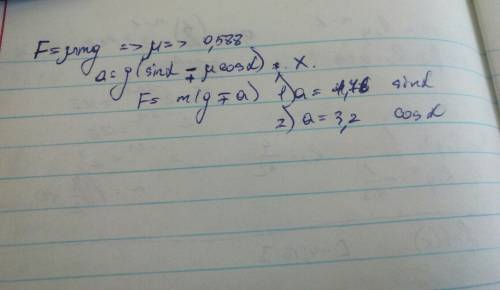 F = μmg => μ => 0,588
a = g(sinα ∓ μcosα) * x.
F = m(g ∓ a) 1) a = 4,76 sinα
2) a = 3,2 cosα